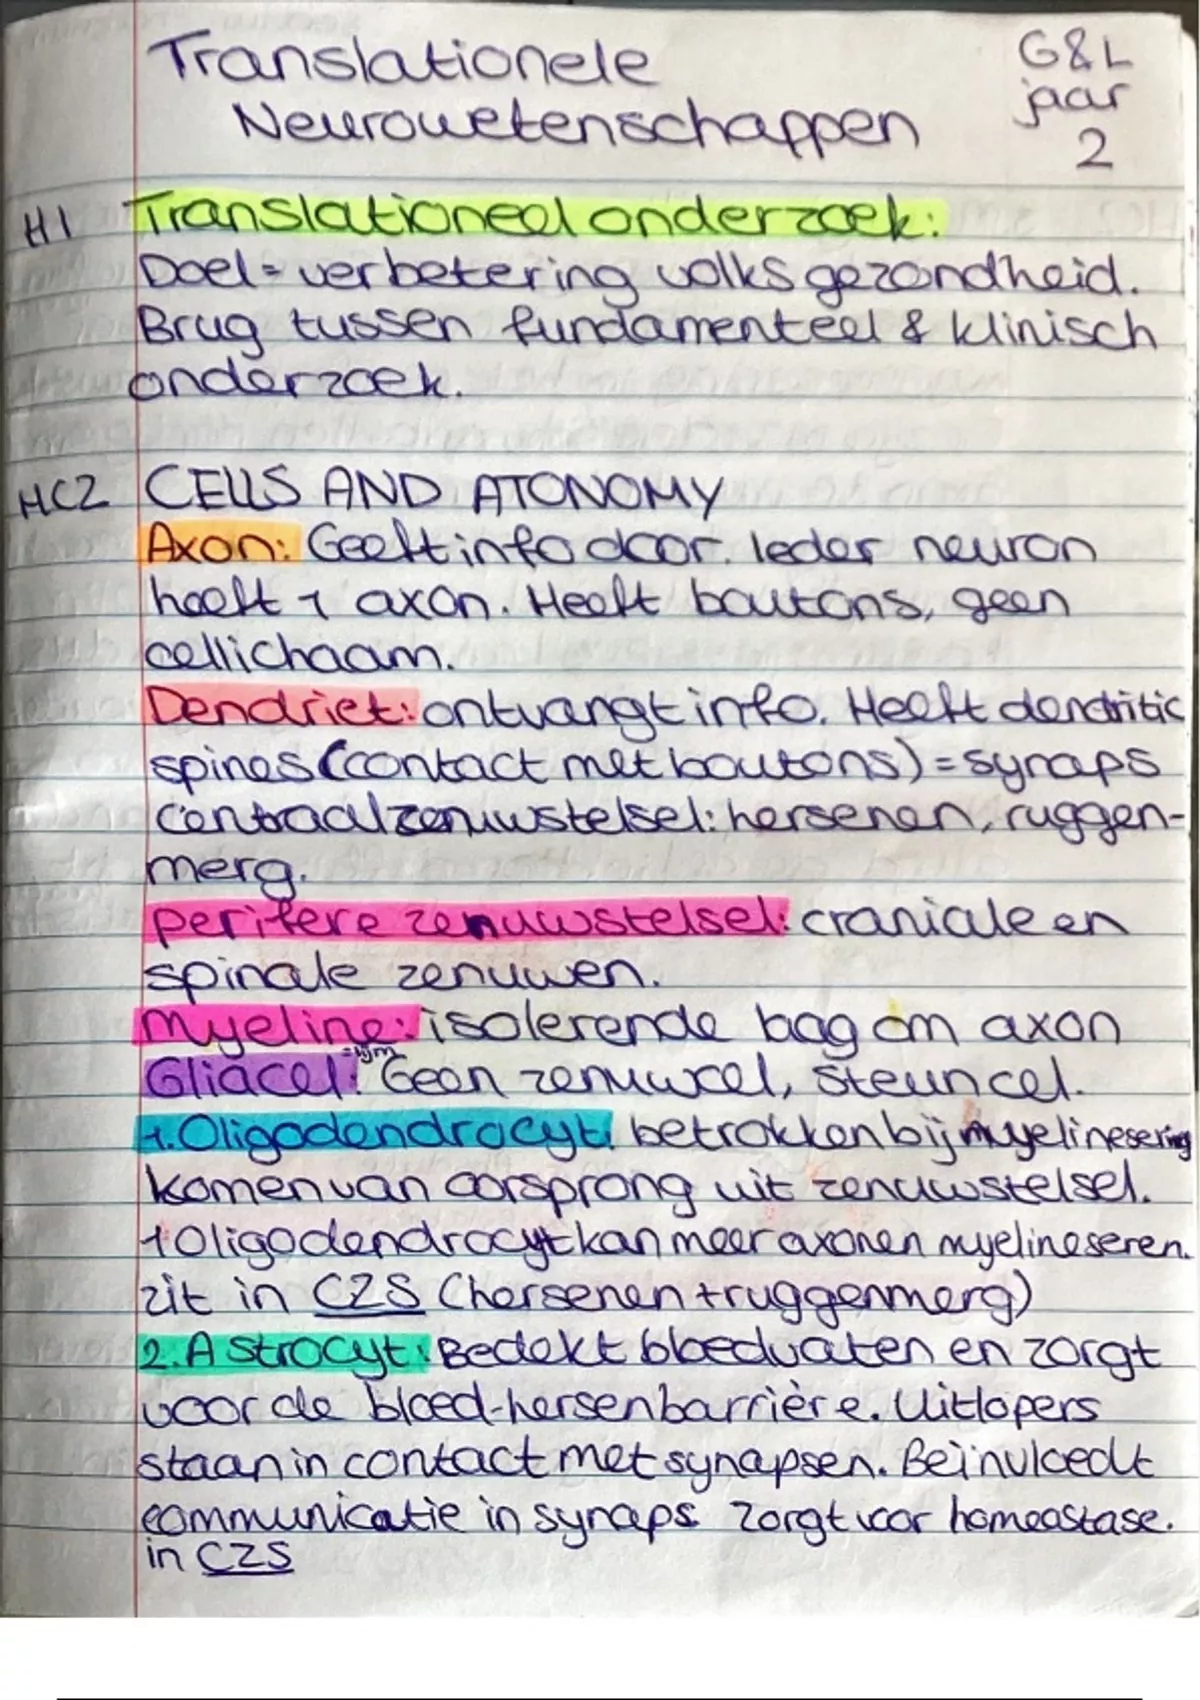 Translationele
Neurowetenschappen
G&L
jaar
2
H1 Translationeel onderzoek:
Doel = verbetering volksgezondheid.
Brug tussen fundamenteel & klinisch
onderzoek.
HC2 CELLS AND ATONOMY
Axon: Geeft info door. Ieder neuron
heeft 1 axon. Heeft boutons, geen
cellichaam.
Dendriet: ontvangt info. Heeft dendritic
spines (contact met boutons) = synaps
Centraal zenuwstelsel: hersenen, ruggen-
merg.
perifere zenuwstelsel: craniale en
spinale zenuwen.
Myeline: isolerende laag om axon
=lijm
Gliacel: Geen zenuwcel, steuncel.
1. Oligodendrocyt: betrokken bij myelinesering
komen van oorsprong uit zenuwstelsel.
1 Oligodendrocyt kan meer axonen myelineseren.
zit in CZS (hersenen + ruggenmerg)
2. Astrocyt: Bedekt bloedvaten en zorgt
voor de bloed-hersenbarrière. Uitlopers
staan in contact met synapsen. Beïnvloedt
communicatie in synaps. Zorgt voor homeostase.
in CZS